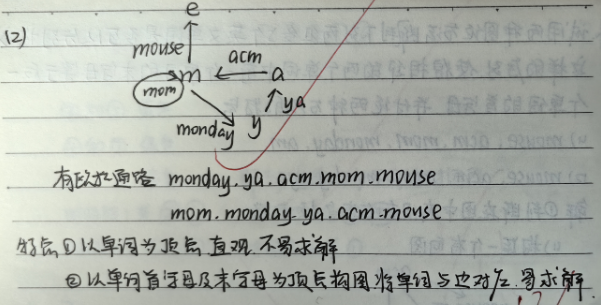 (2)
e
mouse
acm
m
a
mom
ya
monday
y
有欧拉通路 monday.ya.acm.mom.mouse
mom.monday.ya.acm.mouse
特点①以单词为顶点 直观 不易求解
②以单词首字母及末字母为顶点构图 将单词与边对应 易求解